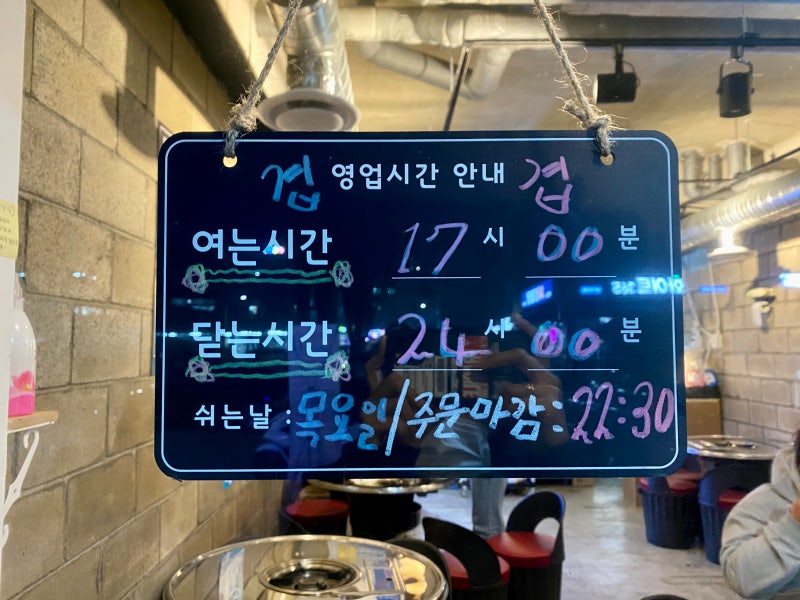 겹 영업시간 안내 겹
여는시간 17 시 00 분
닫는시간 24 시 00 분
쉬는날 : 목요일 / 주문마감 : 22:30